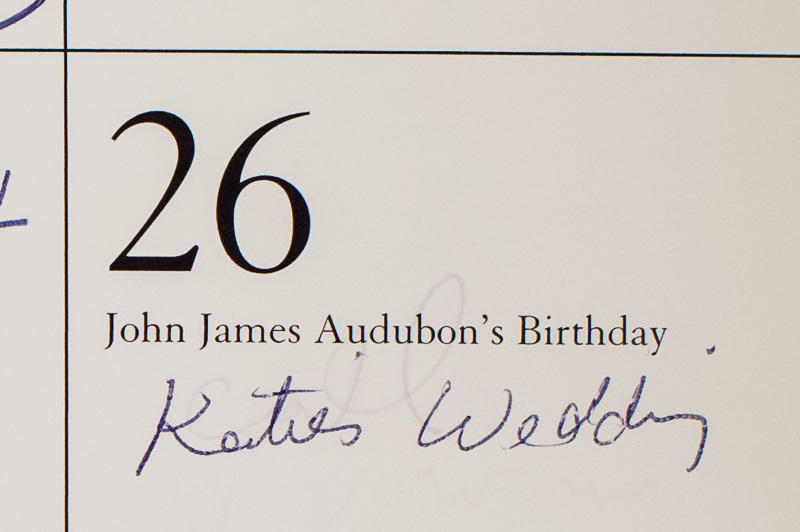 26
John James Audubon's Birthday
Katies Wedding